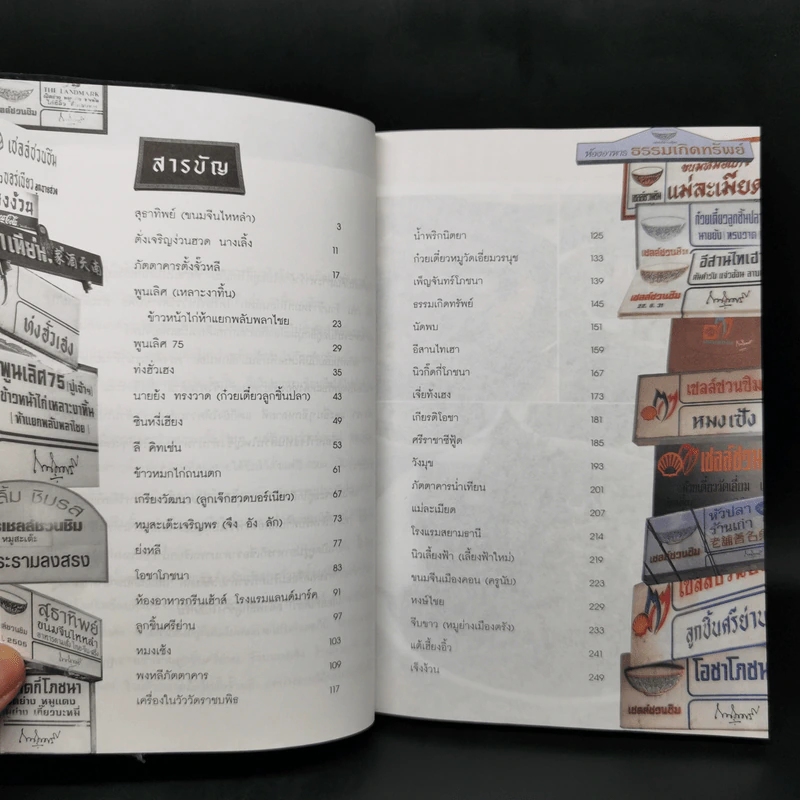 THE LANDMARK
เชลล์ชวนชิม
สารบัญ
สุธาทิพย์ (ขนมจีนไหหลำ) 3
ตั่งเจริญง่วนฮวด นางเลิ้ง 11
ภัตตาคารตั้งจั้วหลี 17
พูนเลิศ (เหลาะงาทิ้น)
ข้าวหน้าไก่ห้าแยกพลับพลาไชย 23
พูนเลิศ 75 29
ท่งฮั่วเฮง 35
นายยัง ทรงวาด (ก๋วยเตี๋ยวลูกชิ้นปลา) 43
ซินหงี่เฮียง 49
ลี คิทเช่น 53
ข้าวหมกไก่ถนนตก 61
เกรียงวัฒนา (ลูกเจ๊กฮวดบอร์เนียว) 67
หมูสะเต๊ะเจริญพร (จึง อัง ลัก) 73
ย่งหลี 77
โอชาโภชนา 83
ห้องอาหารกรีนเฮ้าส์ โรงแรมแลนด์มาร์ค 91
ลูกชิ้นศรีย่าน 97
หมงเชิง 103
พงหลีภัตตาคาร 109
เครื่องในวัววัดราชบพิธ 117
ท่งฮั่วเฮง
พูนเลิศ75 (ปู่เจ้าฯ)
ข้าวหน้าไก่เหลาะงาทิ้น
(ห้าแยกพลับพลาไชย)
ลิ้ม ชิมรส
เชลล์ชวนชิม
หมูสะเต๊ะ
พระรามลงสรง
สุธาทิพย์
ขนมจีนไหหลำ
กี่โภชนา
ห้องอาหาร ธรรมเกิดทรัพย์
แม่ละเมียด
ก๋วยเตี๋ยวลูกชิ้นปลา
นายยัง (ทรงวาด)
อีสานไทเฮา
เชลล์ชวนชิม
น้ำพริกนิตยา 125
ก๋วยเตี๋ยวหมูวัดเอี่ยมวรนุช 133
เพ็ญจันทร์โภชนา 139
ธรรมเกิดทรัพย์ 145
นัดพบ 151
อีสานไทเฮา 159
นิวกี่กี่โภชนา 167
เจี่ยท้งเฮง 173
เกียรติโอชา 181
ศรีราชาซีฟู้ด 185
วังมุข 193
ภัตตาคารน่ำเทียน 201
แม่ละเมียด 207
โรงแรมสยามธานี 214
นิวเลี้ยงฟ้า (เลี้ยงฟ้าใหม่) 219
ขนมจีนเมืองคอน (ครูนับ) 223
หงษ์ไชย 229
จีบขาว (หมูย่างเมืองตรัง) 233
แต้เฮี้ยงอิ้ว 241
เจ็งง้วน 249
เชลล์ชวนชิม
หมงเชิง
เชลล์ชวนชิม
หัวปลา
ร้านเก่า
เชลล์ชวนชิม
ลูกชิ้นศรีย่าน
โอชาโภชนา
เชลล์ชวนชิม